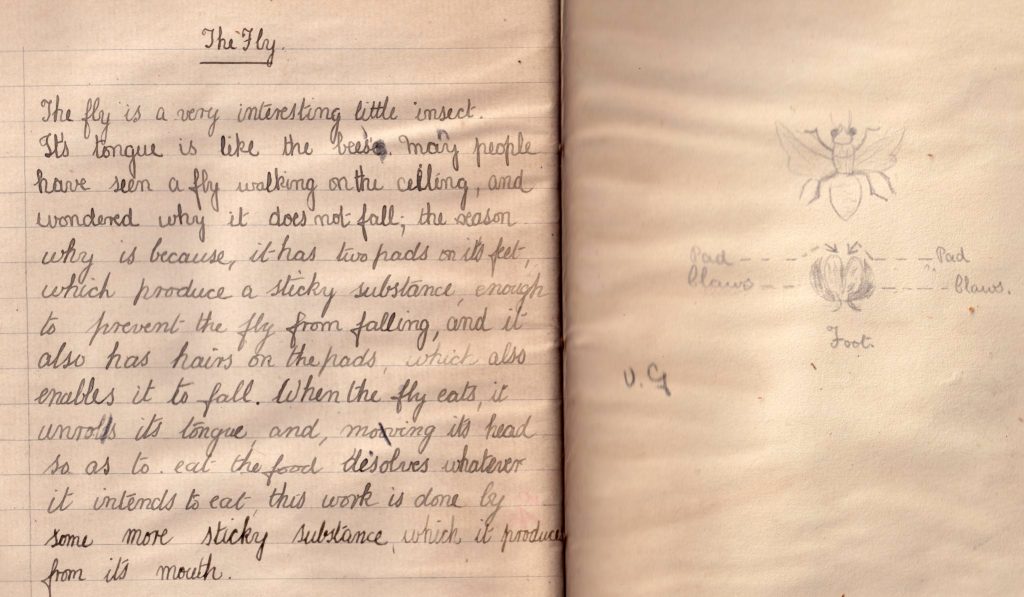 The Fly.
The fly is a very interesting little insect.
Its tongue is like the bees. May people
have seen a fly walking on the ceiling, and
wondered why it does not fall; the reason
why is because, it has two pads on its feet,
which produce a sticky substance, enough
to prevent the fly from falling, and it
also has hairs on the pads, which also
enables it to fall. When the fly eats, it
unrolls its tongue, and, moving its head
so as to eat the food disolves whatever
it intends to eat, this work is done by
some more sticky substance, which it produces
from its mouth.
Pad Pad
Claws Claws.
Foot.
V. G